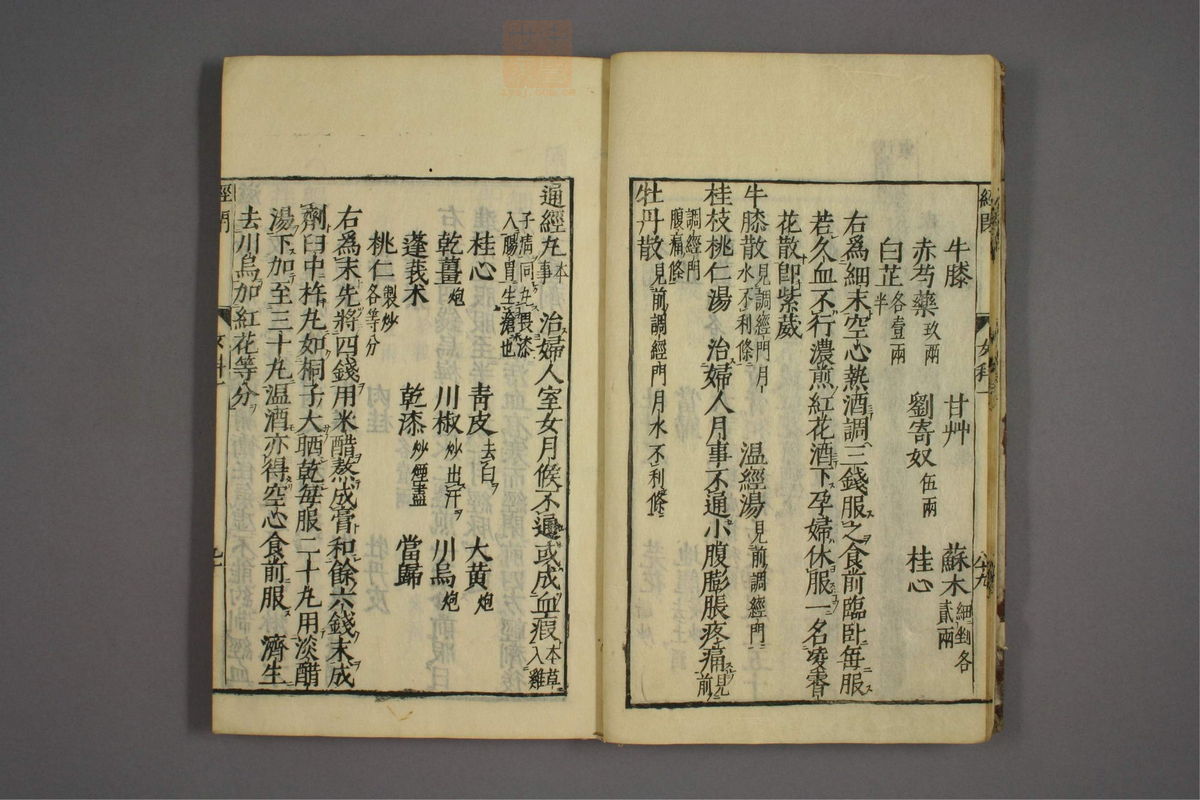 牛膝 甘艸 蘇木細剉各貳兩
赤芍藥玖兩 劉寄奴伍兩 桂心
白芷各壹兩半
右爲細末空心熱酒調三錢服之食前臨臥每服
若久血不行濃煎紅花酒下孕婦休服一名凌霄
花散卽紫葳
牛膝散見調經門月水不利條 溫經湯見前調經門
桂枝桃仁湯 治婦人月事不通小腹膨脹疼痛見前調經門腹痛條
牡丹散見前調經門月水不利條
通經丸本事 治婦人室女月候不通或成血瘕本草入雞子淸同丸畏漆入腸胃生瘡也
桂心 靑皮去白 大黃炮
乾薑炮 川椒炒出汗 川烏炮
蓬莪朮 乾漆炒煙盡 當歸
桃仁製炒各等分
右爲末先將四錢用米醋熬成膏和餘六錢末成
劑臼中杵丸如桐子大晒乾每服二十丸用淡醋
湯下加至三十丸溫酒亦得空心食前服 濟生
去川烏加紅花等分
女科一